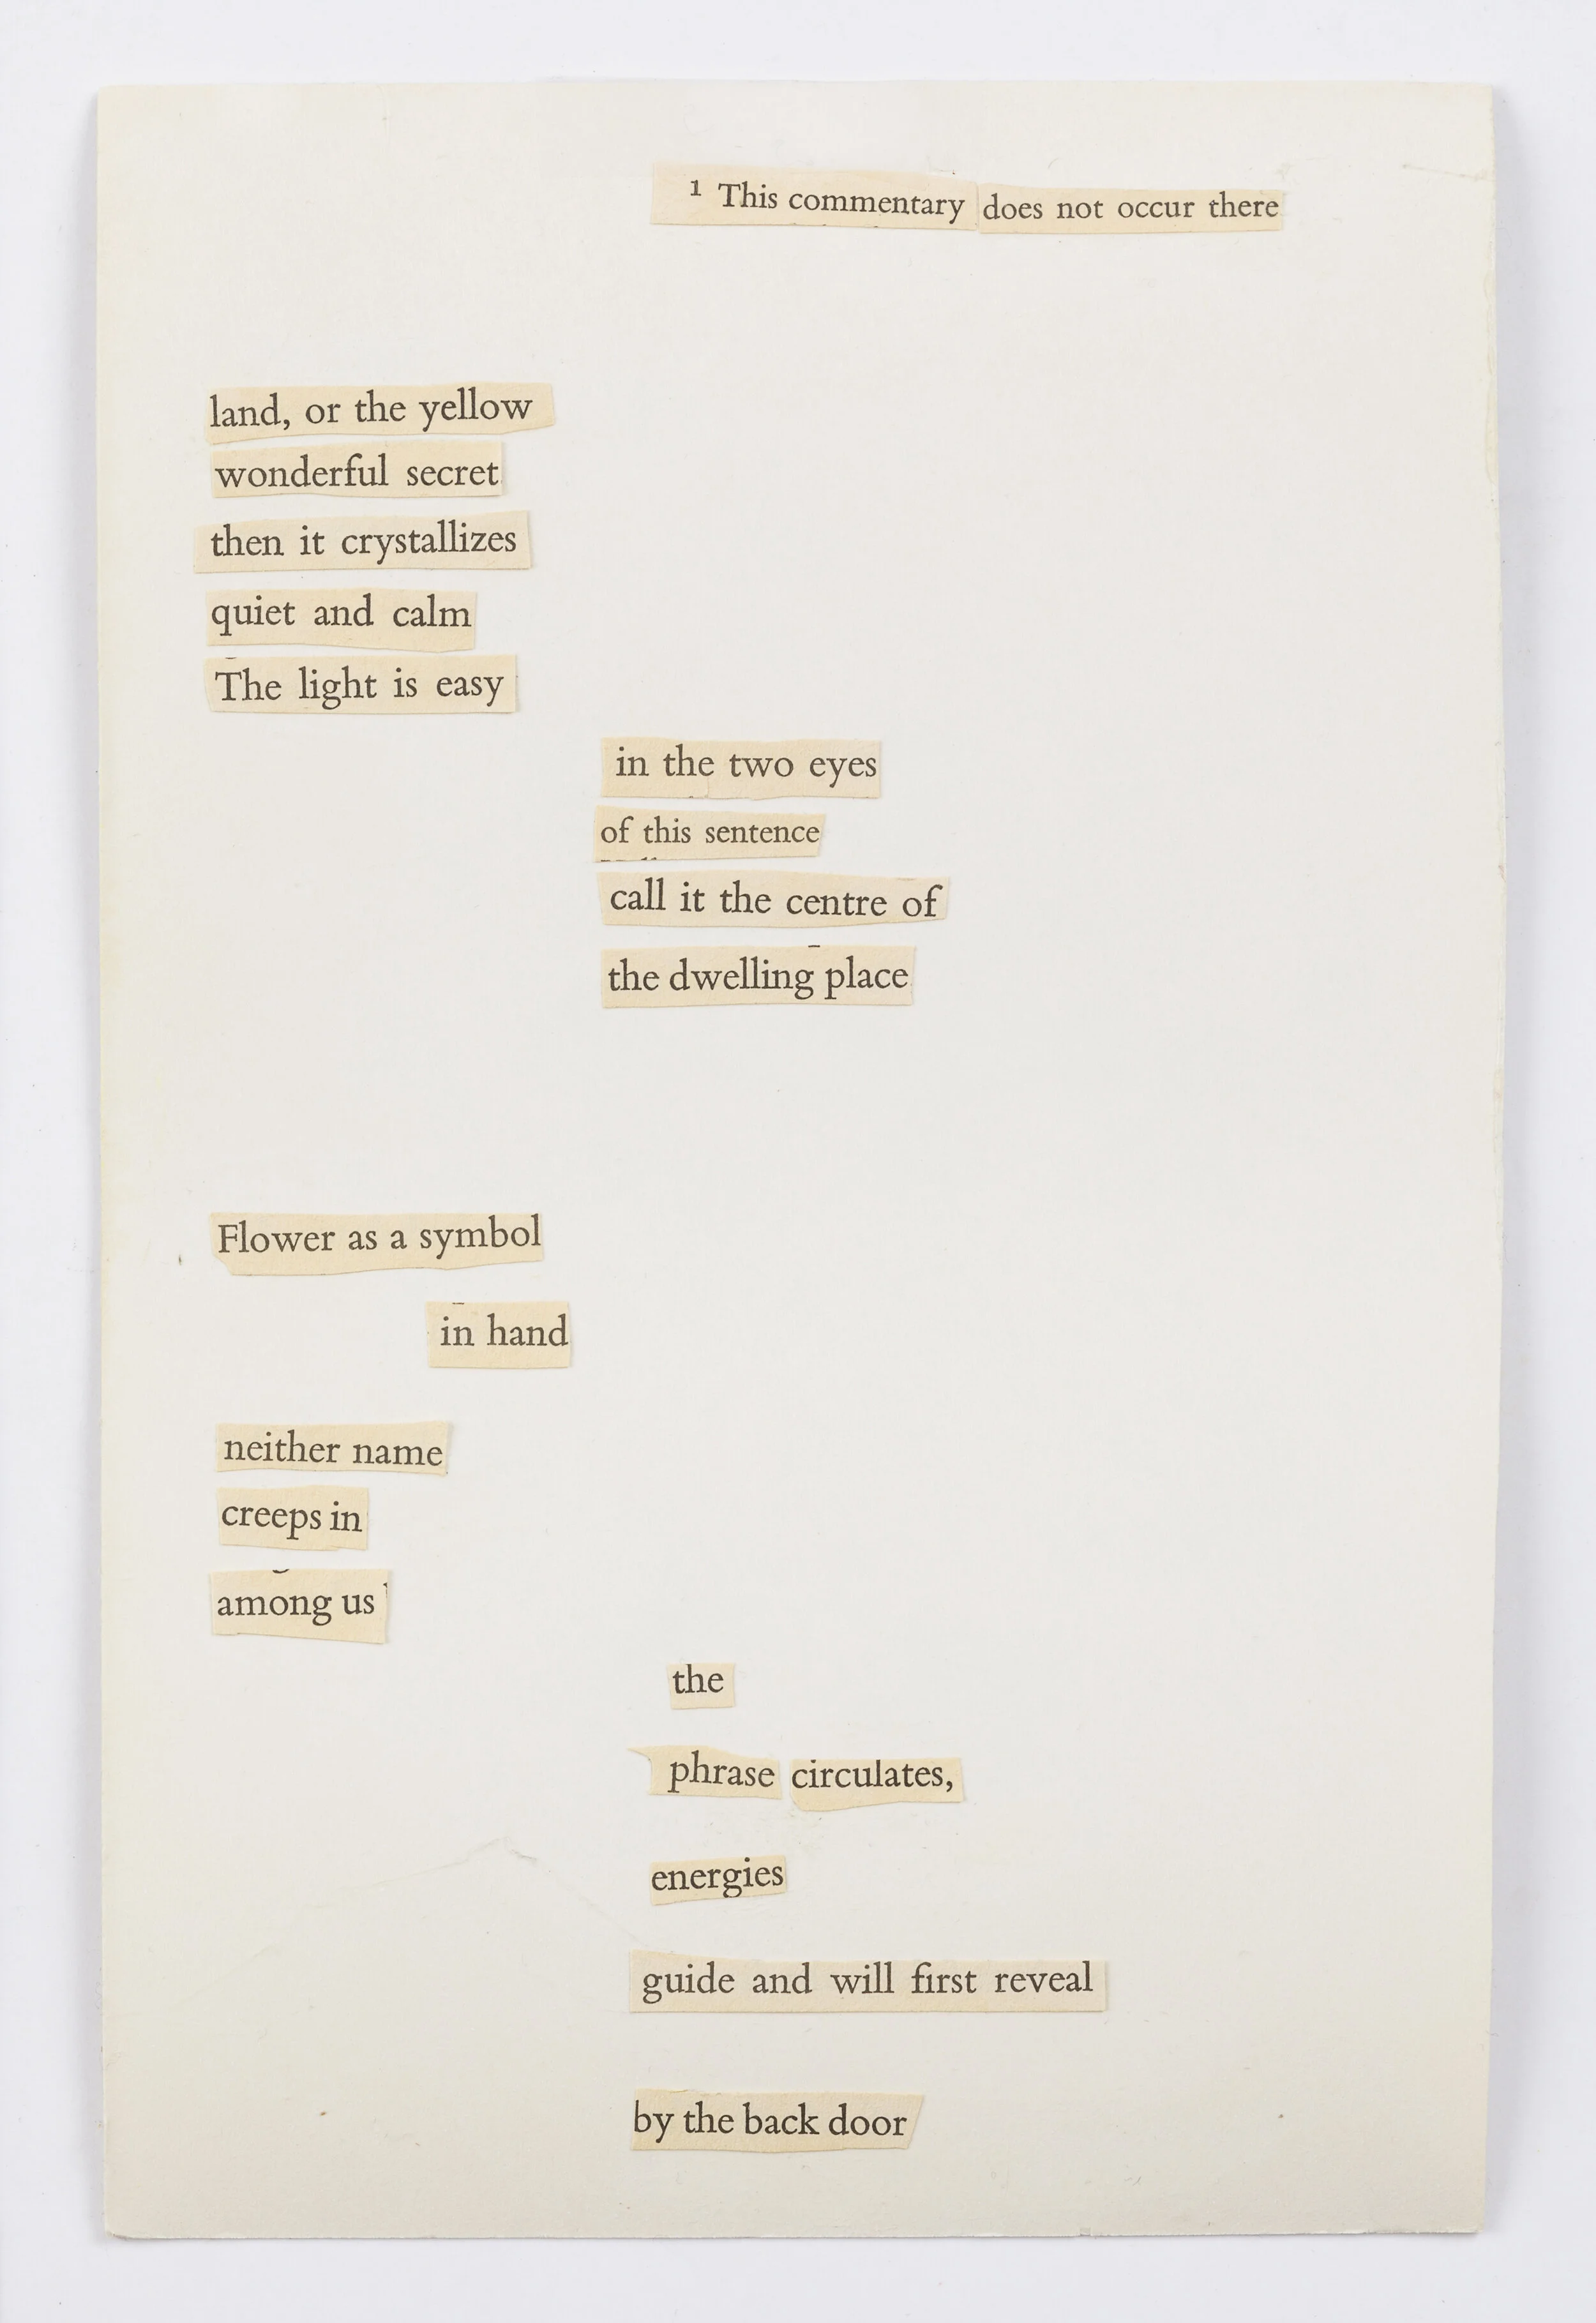 ¹ This commentary does not occur there
land, or the yellow
wonderful secret
then it crystallizes
quiet and calm
The light is easy
in the two eyes
of this sentence
call it the centre of
the dwelling place
Flower as a symbol
in hand
neither name
creeps in
among us
the
phrase circulates,
energies
guide and will first reveal
by the back door